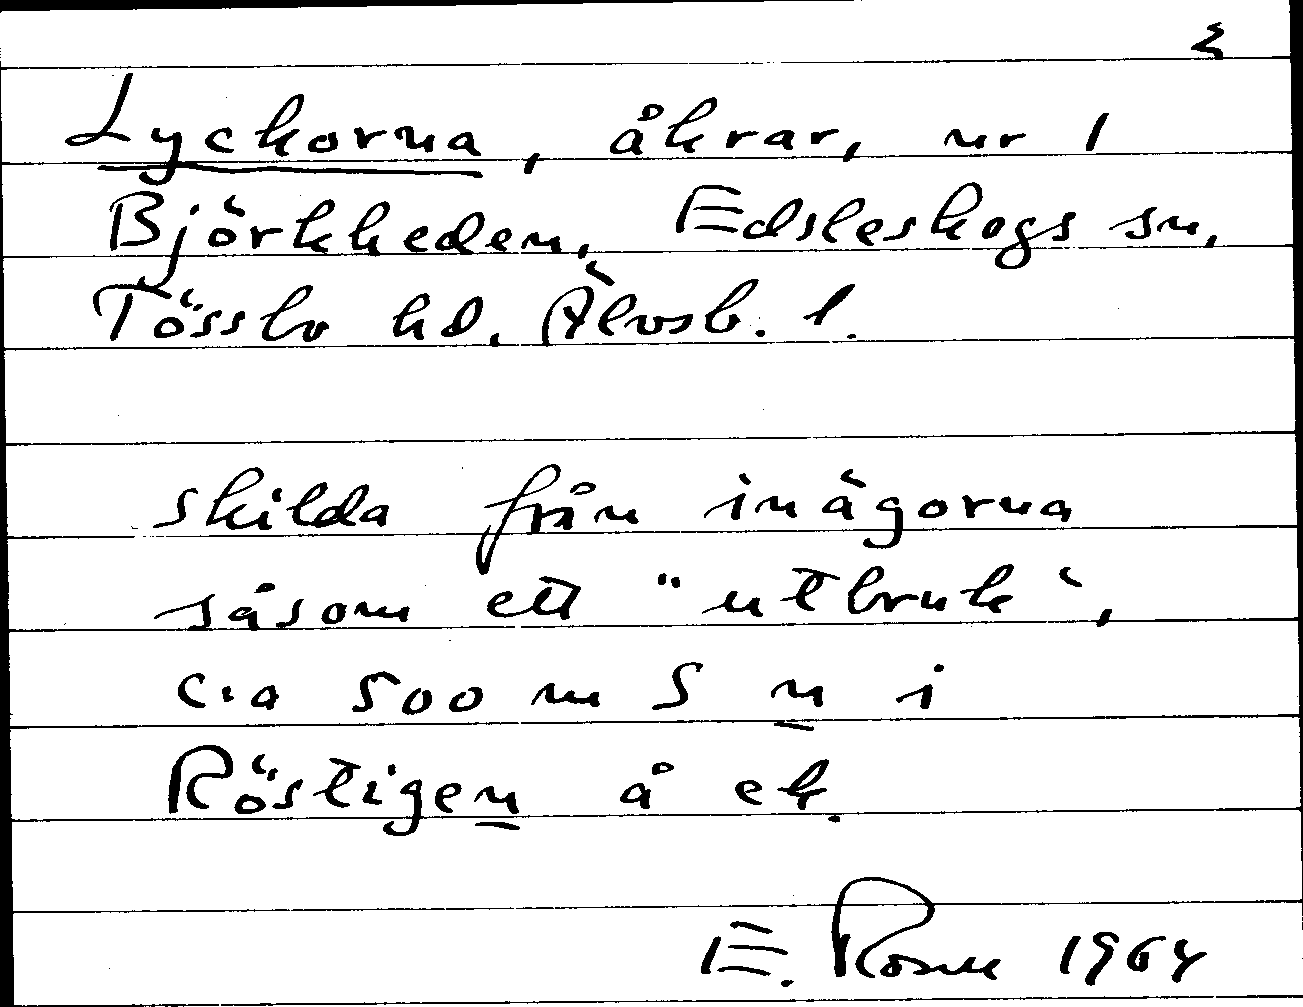 Lyckorna, åkrar, nr 1
Björkheden, Edsleskogs sn,
Tössbo hd. Älvsb. l.
skilda från inägorna
såsom ett "utbruk",
c:a 500 m S n i
Röstigen å ek.
E. 1964